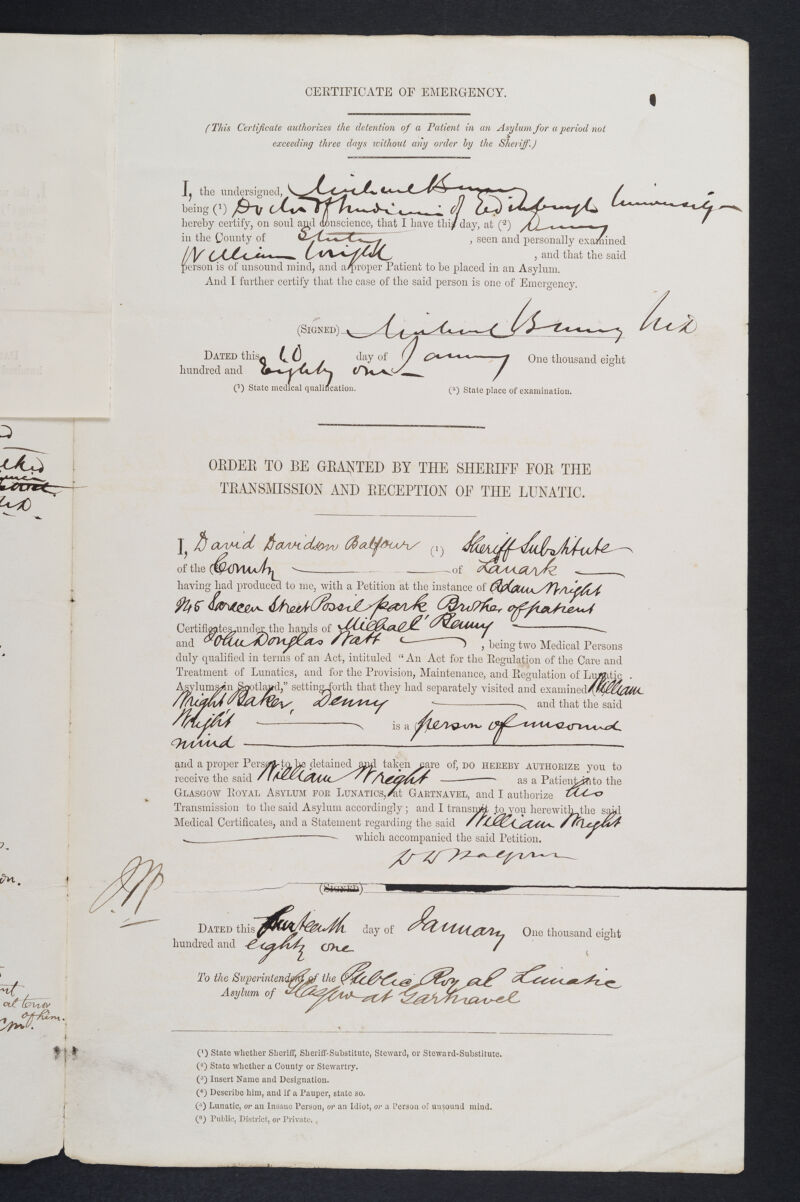 CERTIFICATE OF EMERGENCY.
(This Certificate authorizes the detention of a Patient in an Asylum for a period not
exceeding three days without any order by the Sheriff.)
I, the undersigned, Michael Benny
being (¹) Doctor of Medicine of Edinburgh University
hereby certify, on soul and conscience, that I have this day, at (²) Denny
in the County of Stirling, seen and personally examined
William Wright, and that the said
person is of unsound mind, and a proper Patient to be placed in an Asylum.
And I further certify that the case of the said person is one of Emergency.
(SIGNED) Michael Benny M.D.
DATED this day of January One thousand eight
hundred and Eighty one
(¹) State medical qualification. (²) State place of examination.
ORDER TO BE GRANTED BY THE SHERIFF FOR THE
TRANSMISSION AND RECEPTION OF THE LUNATIC.
I, David Davidson Balfour (¹) Sheriff Substitute
of the County of Lanark
having had produced to me, with a Petition at the instance of Adam Wright
Saracen Street Possil park Brother of patient
Certificates under the hands of Michael Benny
and John Douglas Watt, being two Medical Persons
duly qualified in terms of an Act, intituled "An Act for the Regulation of the Care and
Treatment of Lunatics, and for the Provision, Maintenance, and Regulation of Lunatic
Asylums in Scotland," setting forth that they had separately visited and examined William
Wright Baker, Denny and that the said
Wright is a person of unsound
mind
and a proper Person to be detained and taken care of, DO HEREBY AUTHORIZE you to
receive the said William Wright as a Patient into the
GLASGOW ROYAL ASYLUM FOR LUNATICS, at GARTNAVEL, and I authorize his
Transmission to the said Asylum accordingly; and I transmit to you herewith the said
Medical Certificates, and a Statement regarding the said William Wright
which accompanied the said Petition.
D D Balfour
(SIGNED)
DATED this day of January One thousand eight
hundred and eighty one
To the Superintendent of the Public Royal Lunatic
Asylum of Glasgow at Gartnavel
(¹) State whether Sheriff, Sheriff-Substitute, Steward, or Steward-Substitute.
(²) State whether a County or Stewartry.
(³) Insert Name and Designation.
(⁴) Describe him, and if a Pauper, state so.
(⁵) Lunatic, or an Insane Person, or an Idiot, or a Person of unsound mind.
(⁶) Public, District, or Private.